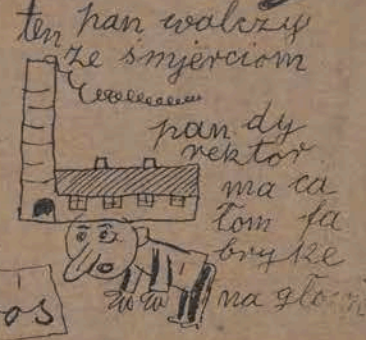 ten pan walczy
ze smjerciom
pan dy
rektor
ma ca
łom fa
bry ke
na głowi
os